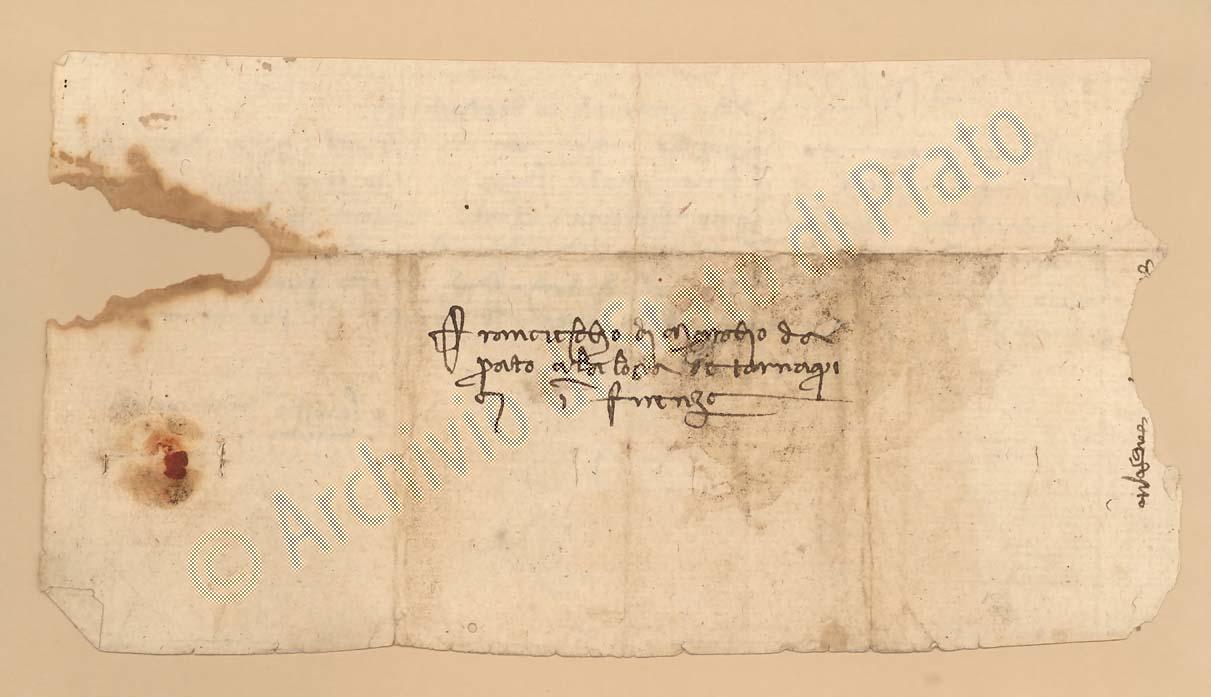 Franciescho di Marcho da
Prato a la logia de tornaqi
in Firenze
© Archivio di Stato di Prato